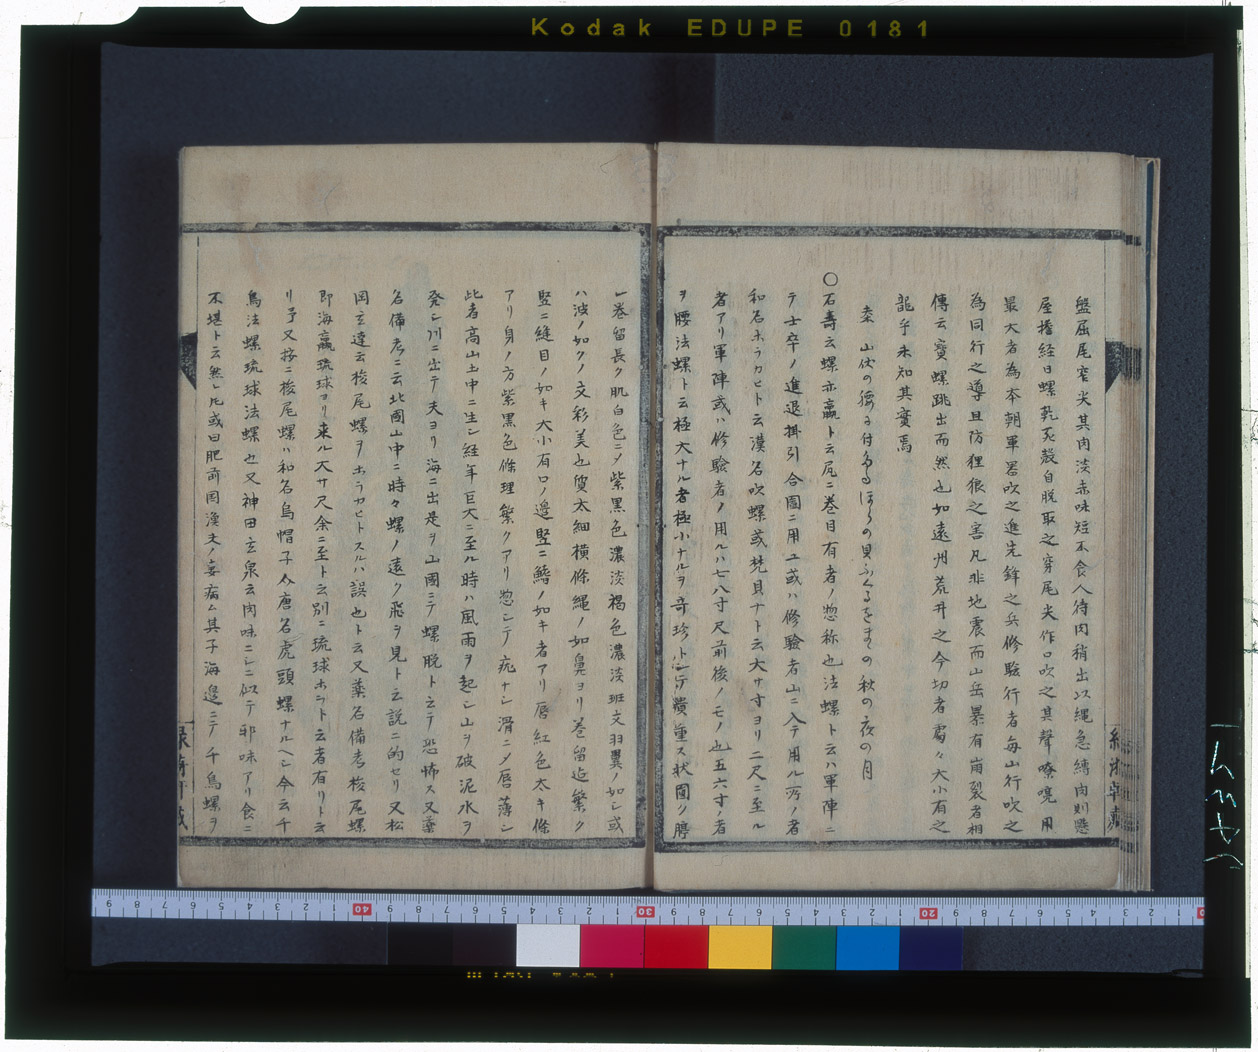 Kodak EDUPE 0181
盤屈尾窄尖其肉淡赤味短不食人待肉稍出以縄急縛肉則懸
屋擔経日螺乾死殼自脱取之穿尾尖作口吹之其聲嘹喨用
最大者為本朝軍器吹之進先鋒之兵修驗行者毎山行吹之
為同行之導且防狸狼之害凡非地震而山岳暴有崩裂者相
傳云寳螺跳出而然也如遠州荒井之今切者處々大小有之
龍乎未知其實焉
山伏の腰に付たるほらの貝ふくるをまつの秋の夜の月
〇石壽云螺亦蠃ト云尻ニ巻目有者ノ惣称也法螺ト云ハ軍陣ニ
テ士卒ノ進退掛引合圖ニ用ユ或ハ修驗者山ニ入テ用ル所ノ者
和名ホラカヒト云漢名吹螺或梵貝ナト云大サ寸ヨリ二尺ニ至ル
者アリ軍陣或ハ修驗者ノ用ルハ七八寸尺前後ノモノ也五六寸ノ者
ヲ腰法螺ト云極大ナル者極小ナルヲ奇珍トシテ貴重ス状圓ク膨
レ巻留長ク肌白色ニメ紫黒色濃淡褐色濃淡班文羽翼ノ如シ或
ハ波ノ如クノ文彩美也質太細横條縄ノ如鼻ヨリ巻留迄繁ク
竪ニ縫目ノ如キ大小有口ノ邉竪ニ鰭ノ如キ者アリ唇紅色太キ條
アリ身ノ方紫黒色條理繁クアリ惣シテ疣ナシ滑ニメ唇薄シ
此者高山土中ニ生シ経年巨大ニ至ル時ハ風雨ヲ起シ山ヲ破泥水ヲ
発シ川ニ出テ夫ヨリ海ニ出是ヲ山國ニテ螺脱ト云テ恐怖ス又藥
名備考ニ云北國山中ニ時々螺ノ遠ク飛ヲ見ト云説ニ的セリ又松
岡玄達云梭尾螺ヲホラカヒトスルハ誤也ト云又藥名備考梭尾螺
即海蠃琉球ヨリ来ル大サ尺余ニ至ト云別ニ琉球ホラト云者有リト云
リ予又按ニ梭尾螺ハ和名烏帽子介唐名虎頭螺ナルヘシ今云千
鳥法螺琉球法螺也又神田玄泉云肉味ニシニ似テ邪味アリ食ニ
不堪ト云無レ𪜈或曰肥前國漁夫ノ妻病ム其子海邉ニテ千鳥螺ヲ